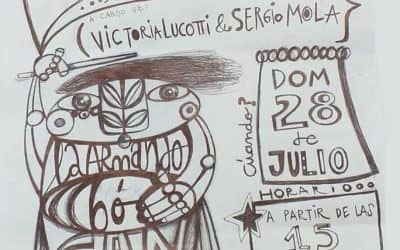 A CARGO DE:
VICTORIA LUCOTTI & SERGIO MOLA
la ARMANDO
Cuando?
DOM
28
de
JULIO
HORARIO...
A PARTIR DE LAS
15